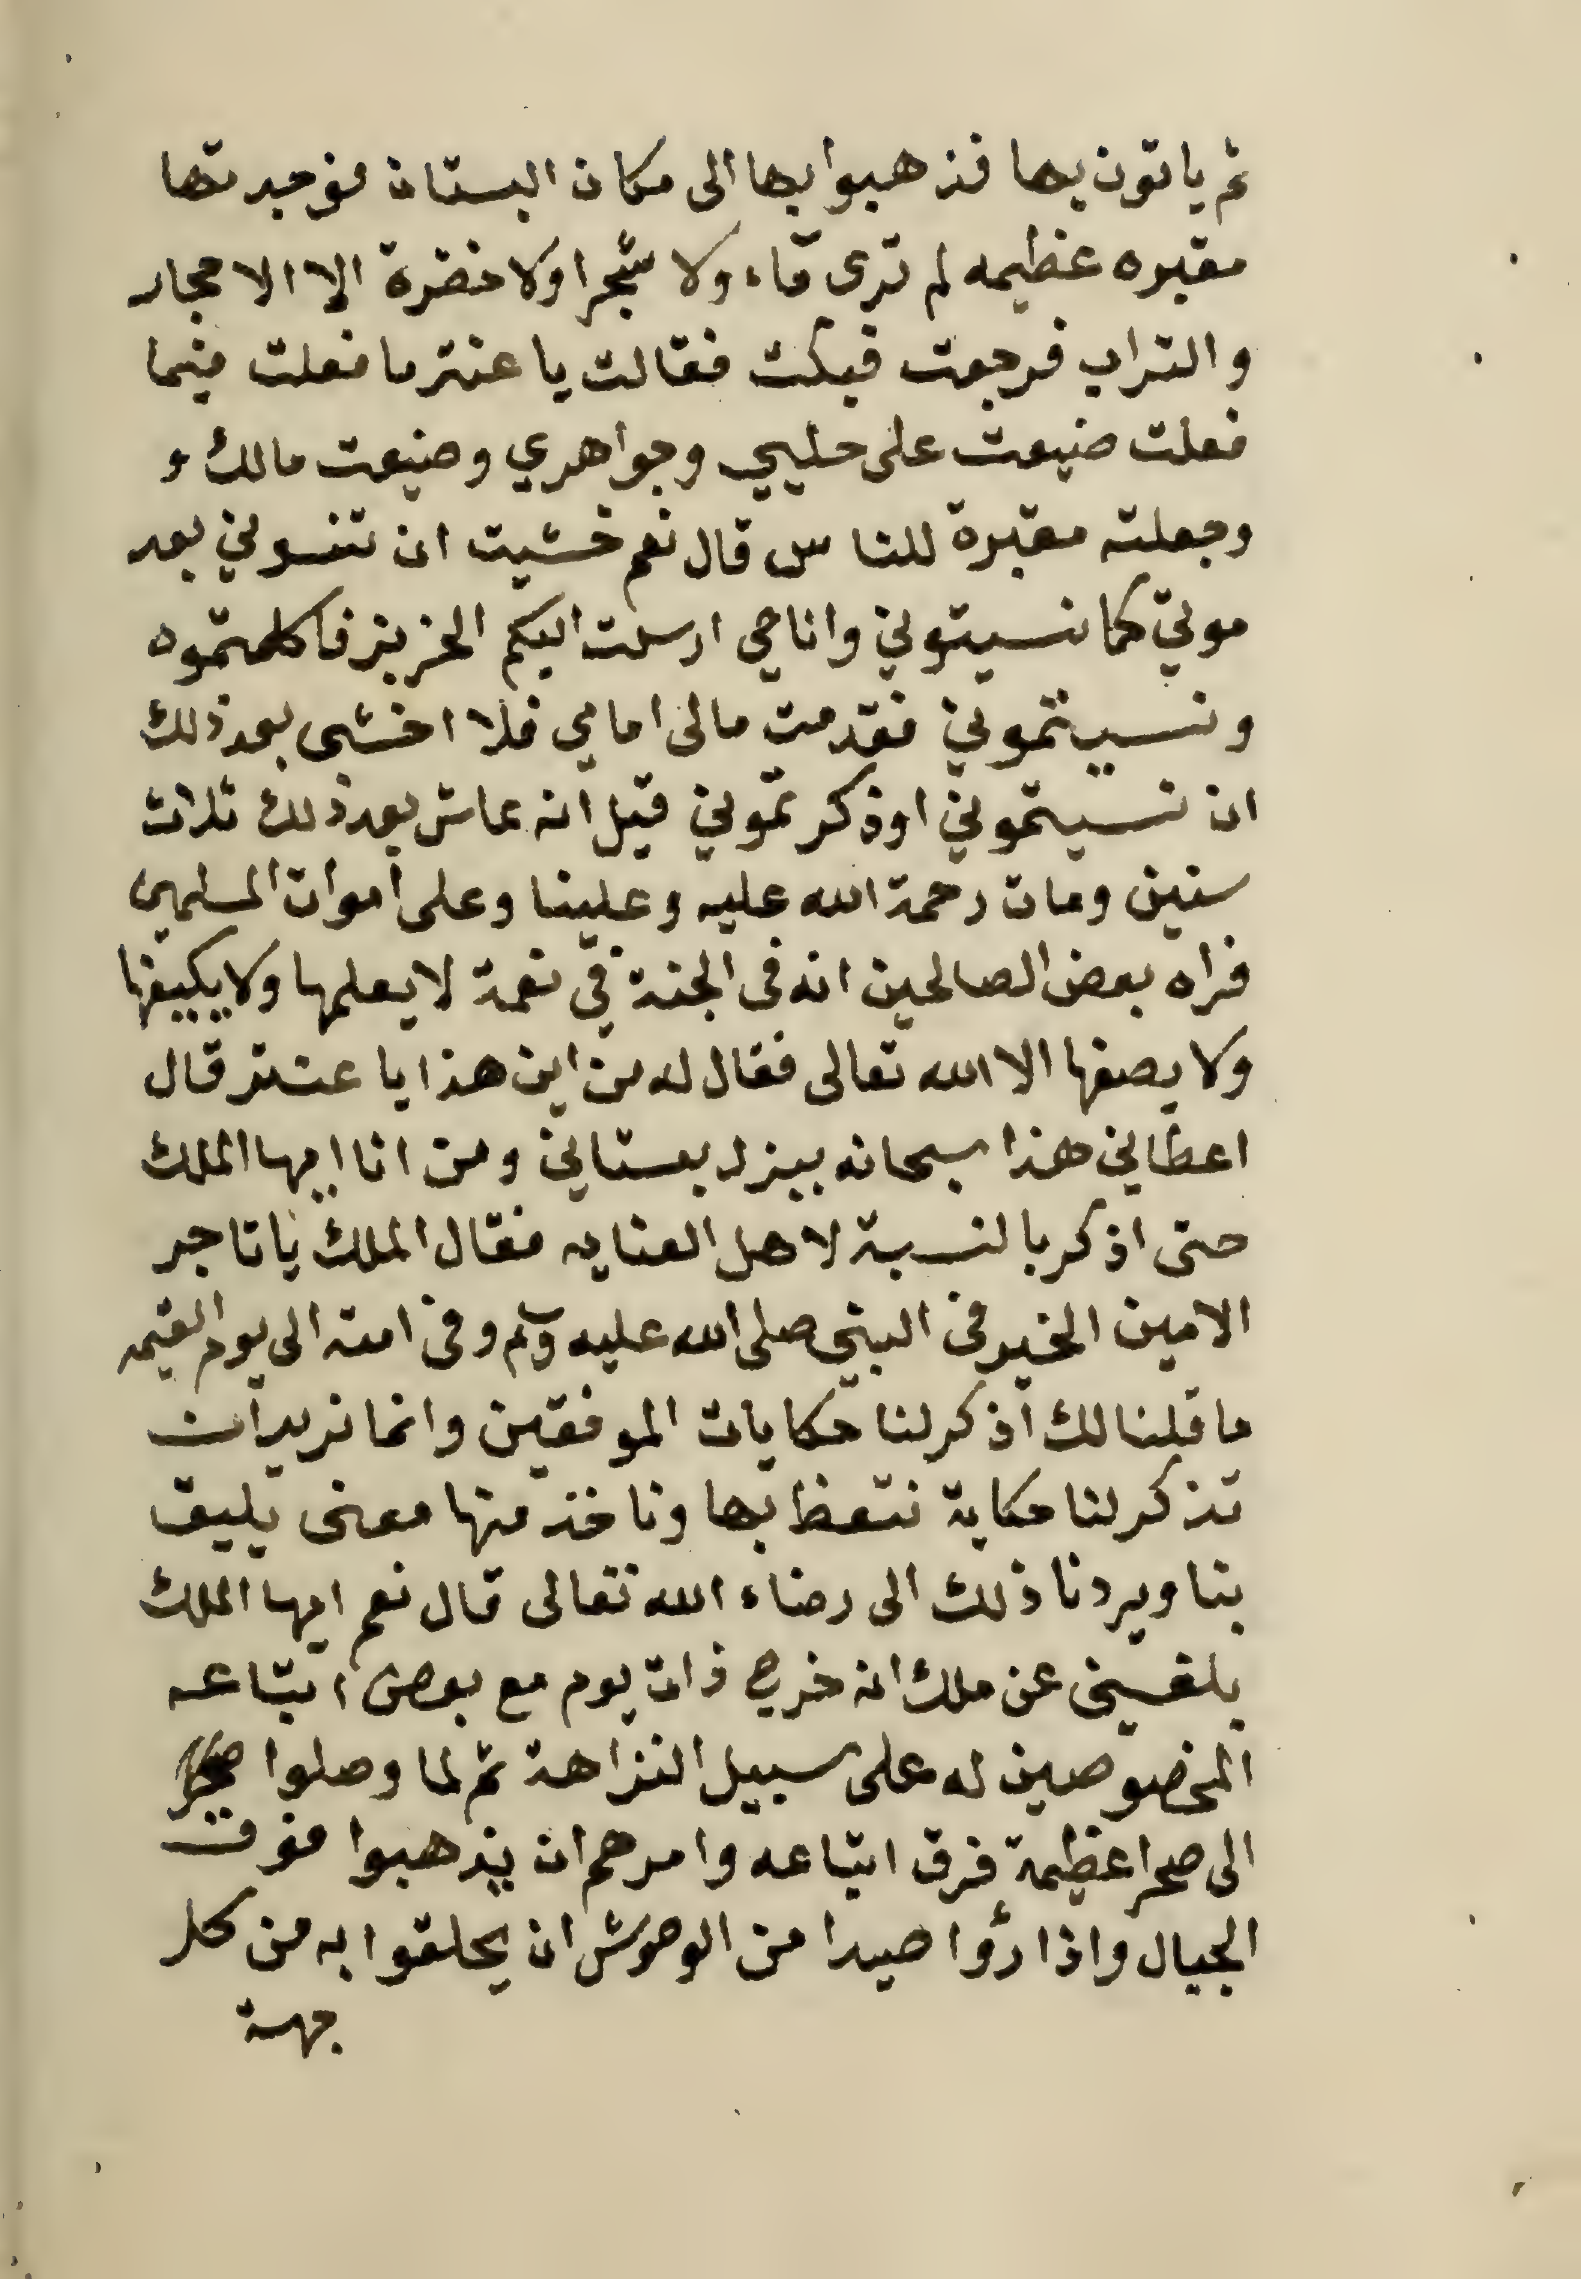 ثم ياتون بها فذهبوا بها الى مكان البستان فوجدتها
مقبره عظيمه لم ترى ماء ولا شجرا ولا خضرة الا الاحجار
والتراب فرجعت فبكت فقالت يا عنتر ما فعلت فيما
فعلت ضيعت على حليي وجواهري وضيعت مالك و
وجعلته مقبرة للناس قال نعم خشيت ان تنسوني بعد
موتي كما نسيتوني وانا حي ارسلت اليكم الخربز فاكلمتموه
ونسيتموني فقدمت مالى امامي فلا اخشى بعد ذلك
ان نسيتموني اوذكرتموني قيل انه عاش بعد ذلك ثلاث
سنين ومات رحمة الله عليه وعلينا وعلى اموات المسلمين
فراه بعض الصالحين انه فى الجنة في نعمة لا يعلمها ولا يكيفها
ولا يصفها الا الله تعالى فقال له من اين هذا يا عنتر قال
اعطاني هذا سبحانه ببزل بستاني ومن انا ايها الملك
حتى اذكر بالنسبة لاهل العنايه فقال الملك يا تاجر
الامين الخير فى النبي صلى الله عليه وسلم وفى امته الى يوم القيمه
ما قلنا لك اذكر لنا حكايات الموفقين وانما نريد ان
تذكر لنا حكاية نتعظ بها وناخذ منها معنى يليق
بنا ويردنا ذلك الى رضاء الله تعالى قال نعم ايها الملك
بلغني عن ملك انه خرج ذات يوم مع بعض اتباعه
المخصوصين له على سبيل النزاهة ثم لما وصلوا
الى صحرا عظيمة فرق اتباعه وامرهم ان يذهبوا فوق
الجبال واذا رؤا صيدا من الوحوش ان يحلقوا به من كل
جهة